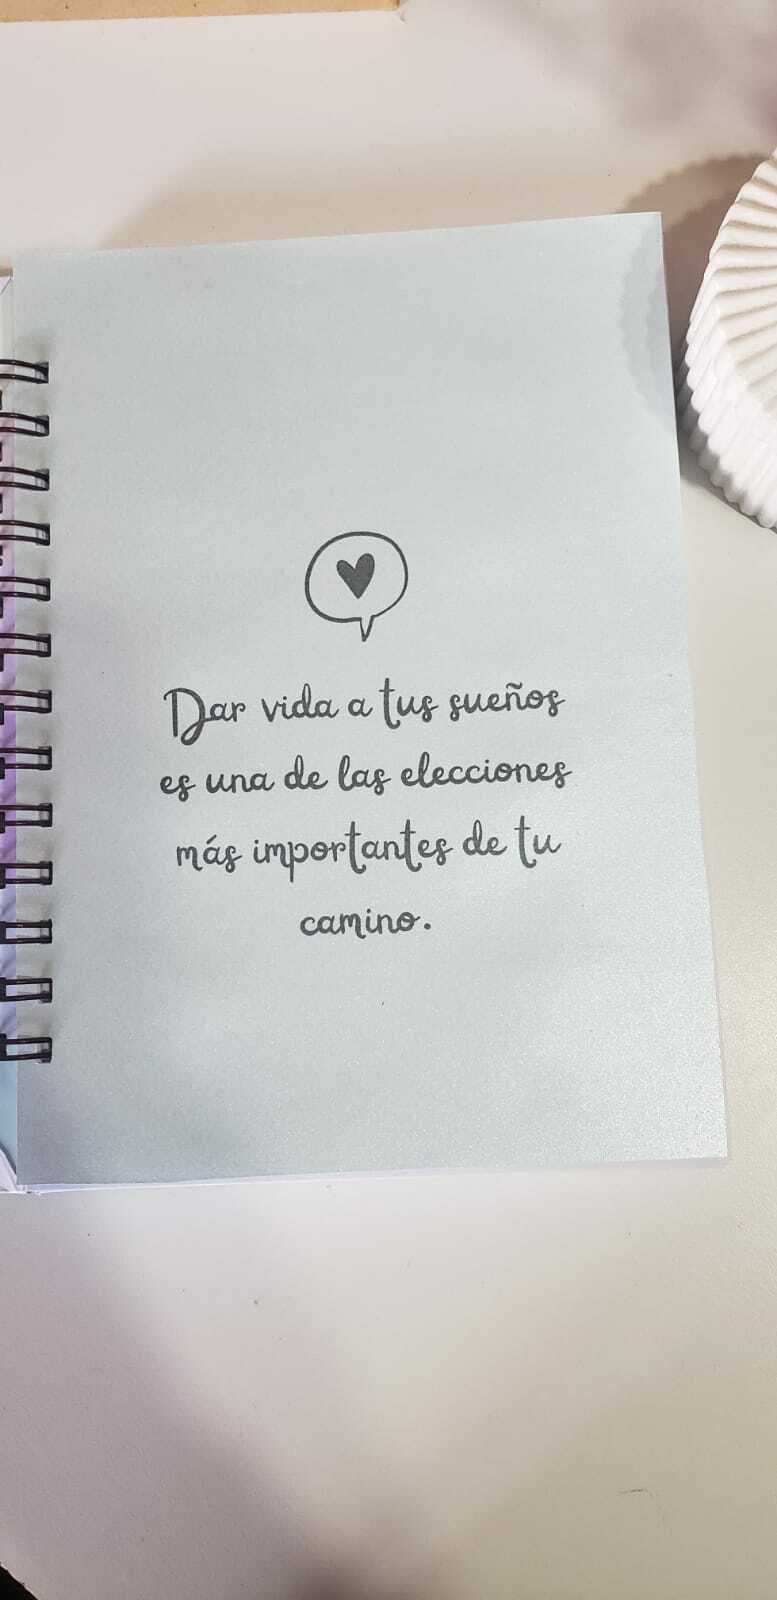 Dar vida a tus sueños
es una de las elecciones
más importantes de tu
camino.